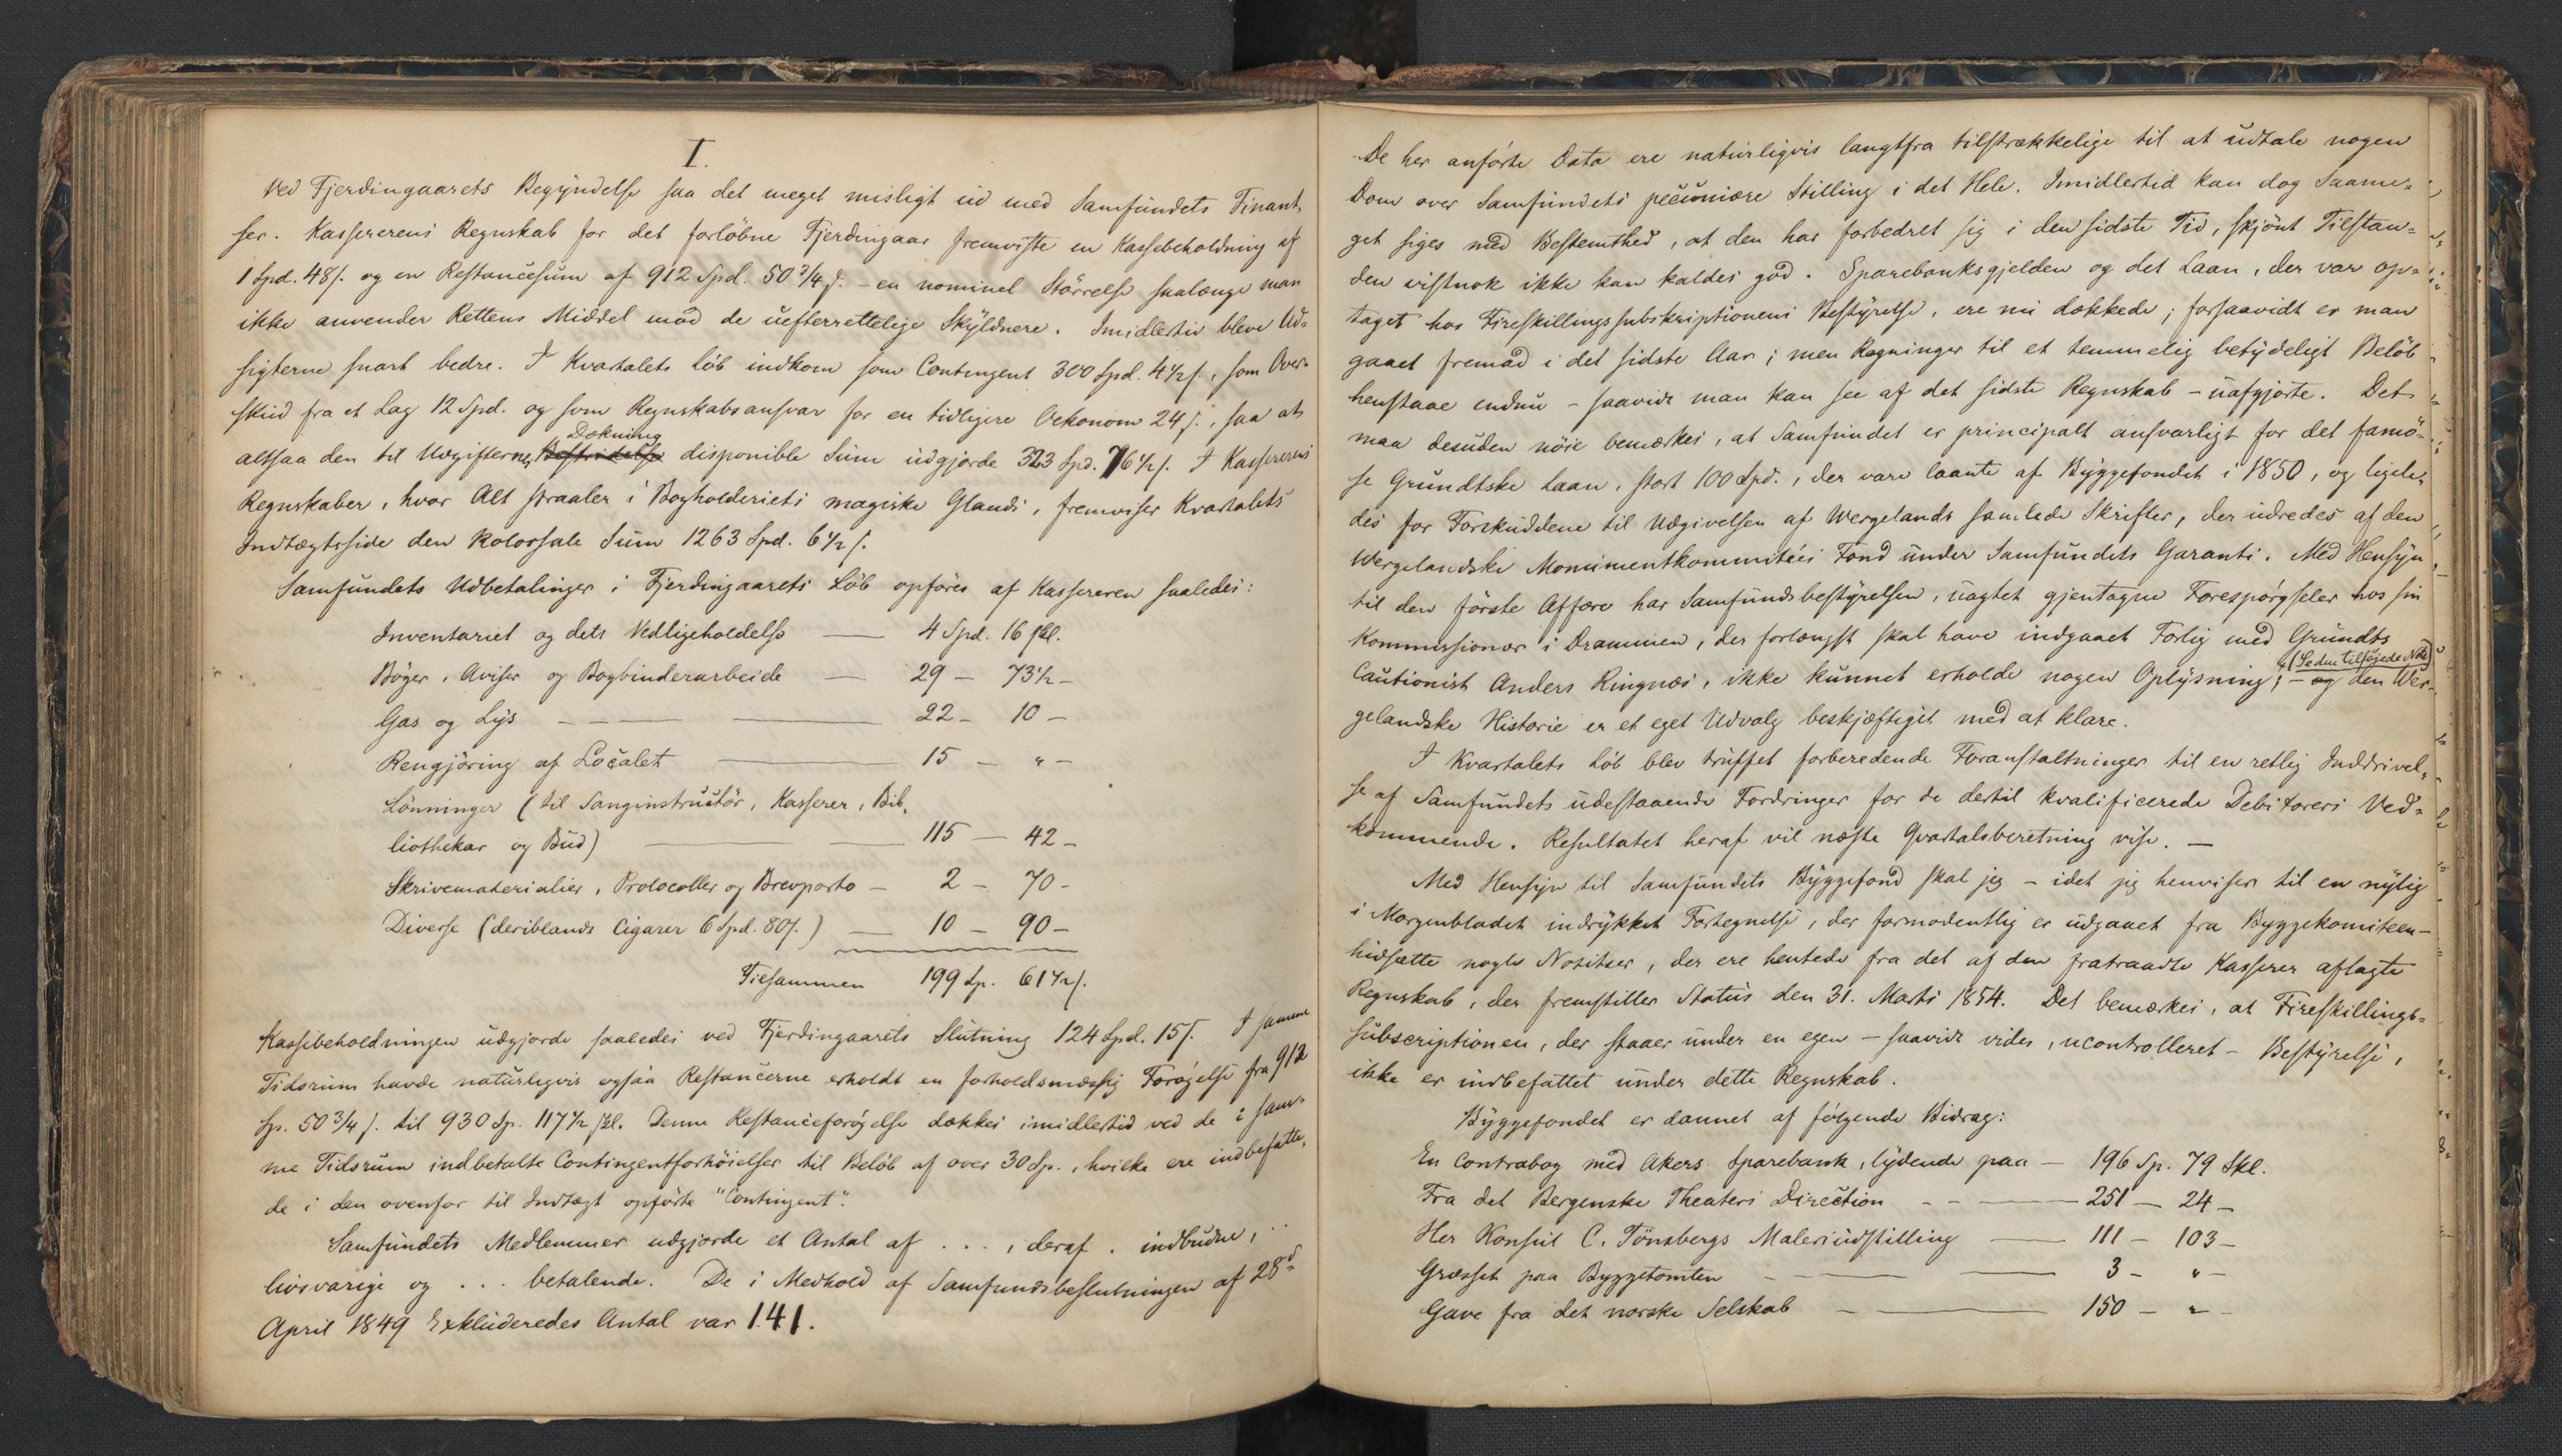 I.
Ved Fjerdingaarets Begyndelse saa det meget misligt ud med Samfundets Finant-
ser. Kassererens Regnskab for det forløbne Fjerdingaar fremviste en Kassebeholdning af
1 Spd. 48 s. og en Restancesum af 912 Spd. 50 3/4 s. - en nominel Størrelse saalænge man
ikke anvender Rettens Middel mod de uefterrettelige Skyldnere. Imidlertid bleve Ud-
sigterne snart bedre. I Kvartalets Løb indkom som Contingent 300 Spd. 4 1/2 s., som Over-
skud fra et Lag 12 Spd. og som Regnskabsansvar for en tidligere Oekonom 24 s., saa at
Dækning
altsaa den til Udgifternes Bestridelse disponible Sum udgjorde 323 Spd. 76 1/2 s. I Kassererens
Regnskaber, hvor Alt straaler i Bogholderiets magiske Glands, fremviser Kvartalets
Indtægtsside den kolossale Sum 1263 Spd. 6 1/2 s.
Samfundets Udbetalinger i Fjerdingaarets Løb opføres af Kassereren saaledes:
Inventariet og dets Vedligeholdelse — 4 Spd. 16 skl.
Bøger, Aviser og Bogbinderarbeide — 29 — 73 1/2 —
Gas og Lys — — 22 — 10 —
Rengjøring af Localet — 15 — " —
Lønninger (til Sanginstructør, Kasserer, Bib-
liothekar og Bud) — 115 — 42 —
Skrivematerialier, Protocoller og Brevporto — 2 — 70 —
Diverse (deriblandt Cigarer 6 Spd. 80 s.) — 10 — 90 —
Tilsammen 199 Sp. 61 1/2 s.
Kassebeholdningen udgjorde saaledes ved Fjerdingaarets Slutning 124 Spd. 15 s. I samme
Tidsrum havde naturligvis ogsaa Restancerne erholdt en forholdsmæssig Forøgelse fra 912
Sp. 50 3/4 s. til 930 Sp. 117 1/2 skl. Denne Restanceforøgelse dækkes imidlertid ved de i sam-
me Tidsrum indbetalte Contingentforhøielser til Beløb af over 30 Sp., hvilke ere indbefatte-
de i den ovenfor til Indtægt opførte "Contingent".
Samfundets Medlemmer udgjorde et Antal af . . . , deraf . indbudne, . .
livsvarige og . . . betalende. De i Medhold af Samfundsbeslutningen af 28de
April 1849 Exkluderedes Antal var 141.
De her anførte Data ere naturligvis langtfra tilstrækkelige til at udtale nogen
Dom over Samfundets pecuniære Stilling i det Hele. Imidlertid kan dog saame-
get siges med Bestemthed, at den har forbedret sig i den sidste Tid, skjønt Tilstan-
den vistnok ikke kan kaldes god. Sparebanksgjelden og det Laan, der var op-
taget hos Fireskillingssubskriptionens Bestyrelse, ere nu dækkede; forsaavidt er man
gaaet fremad i det sidste Aar; men Regninger til et temmelig betydeligt Beløb
henstaae endnu - saavidt man kan see af det sidste Regnskab - uafgjorte. Det
maa desuden nøie bemærkes, at Samfundet er principalt ansvarligt for det famø-
se Grundtske Laan, stort 100 Spd., der var laante af Byggefondet i 1850, og ligele-
des for Forskuddene til Udgivelsen af Wergelands samlede Skrifter, der udredes af den
Wergelandske Monumentkommitées Fond under Samfundets Garanti. Med Hensyn
til den første Affære har Samfundsbestyrelsen, uagtet gjentagne Forespørgseler hos sin
Kommissionær i Drammen, der forlængst skal have indgaaet Forlig med Grundts
(Se den tilføiede Note)
Cautionist Anders Ringnæs, ikke kunnet erholde nogen Oplysning; - og den Wer-
gelandske Historie er et eget Udvalg beskjæftiget med at klare.
I Kvartalets Løb blev truffet forberedende Foranstaltninger til en retlig Inddrivel-
se af Samfundets udestaaende Fordringer for de dertil kvalificerede Debitorers Ved-
kommende. Resultatet heraf vil næste Qvartalsberetning vise. —
Med Hensyn til Samfundets Byggefond skal jeg - idet jeg henviser til en nylig
i Morgenbladet indrykket Fortegnelse, der formodentlig er udgaaet fra Byggekomiteen -
hidsætte nogle Notitser, der ere hentede fra det af den fratraadte Kasserer aflagte
Regnskab, der fremstiller Status den 31. Marts 1854. Det bemærkes, at Fireskillings-
subscriptionen, der staaer under en egen - saavidt vides, ucontrolleret - Bestyrelse,
ikke er indbefattet under dette Regnskab.
Byggefondet er dannet af følgende Bidrag:
En Contrabog med Akers Sparebank, lydende paa — 196 Sp. 79 Skl.
Fra det Bergenske Theaters Direction — 251 — 24 —
Her Konsul C. Tönsbergs Maleriudstilling — 111 — 103 —
Græsset paa Byggetomten — 3 — " —
Gave fra det norske Selskab — 150 — " —